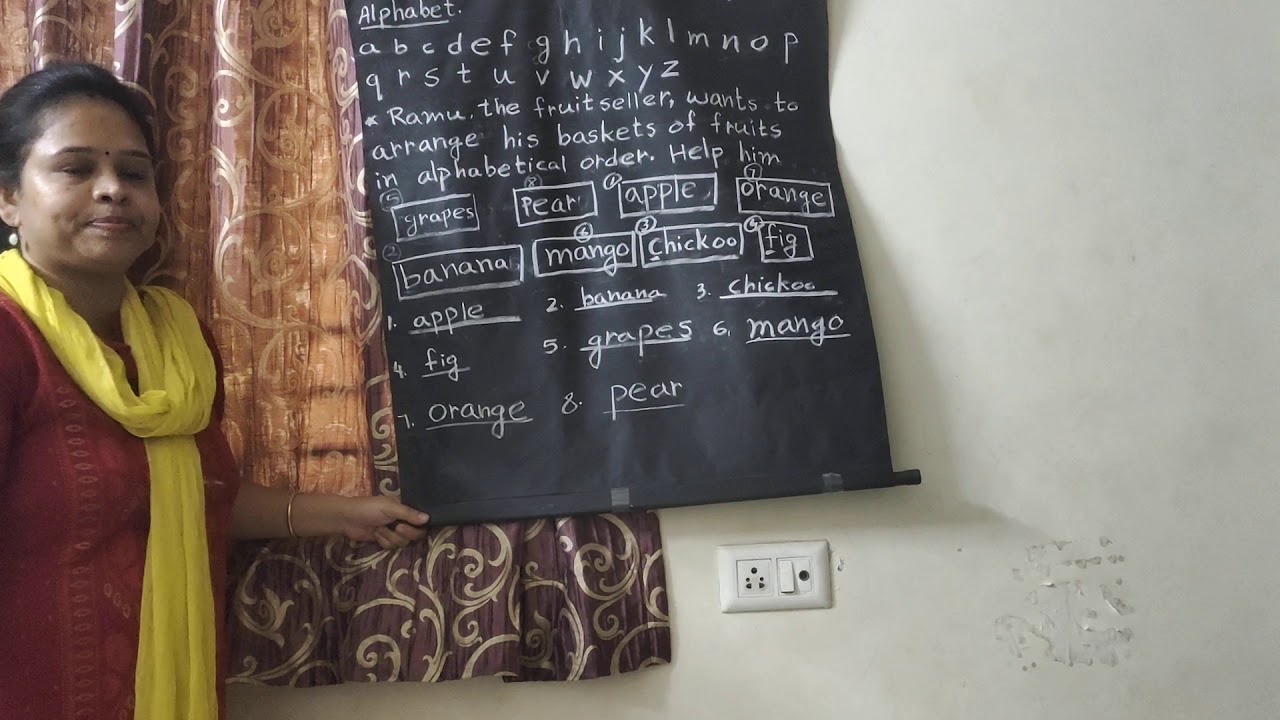 Alphabet.
a b c d e f g h i j k l m n o p
q r s t u v w x y z
* Ramu, the fruit seller, wants to
arrange his baskets of fruits
in alphabetical order. Help him
5 8 1 7
grapes pear apple orange
2 6 3 4
banana mango chickoo fig
1. apple 2. banana 3. chickoo
4. fig 5. grapes 6. mango
7. orange 8. pear